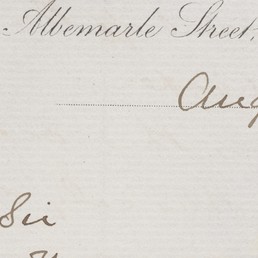 Albemarle Street.
Aug
Sir